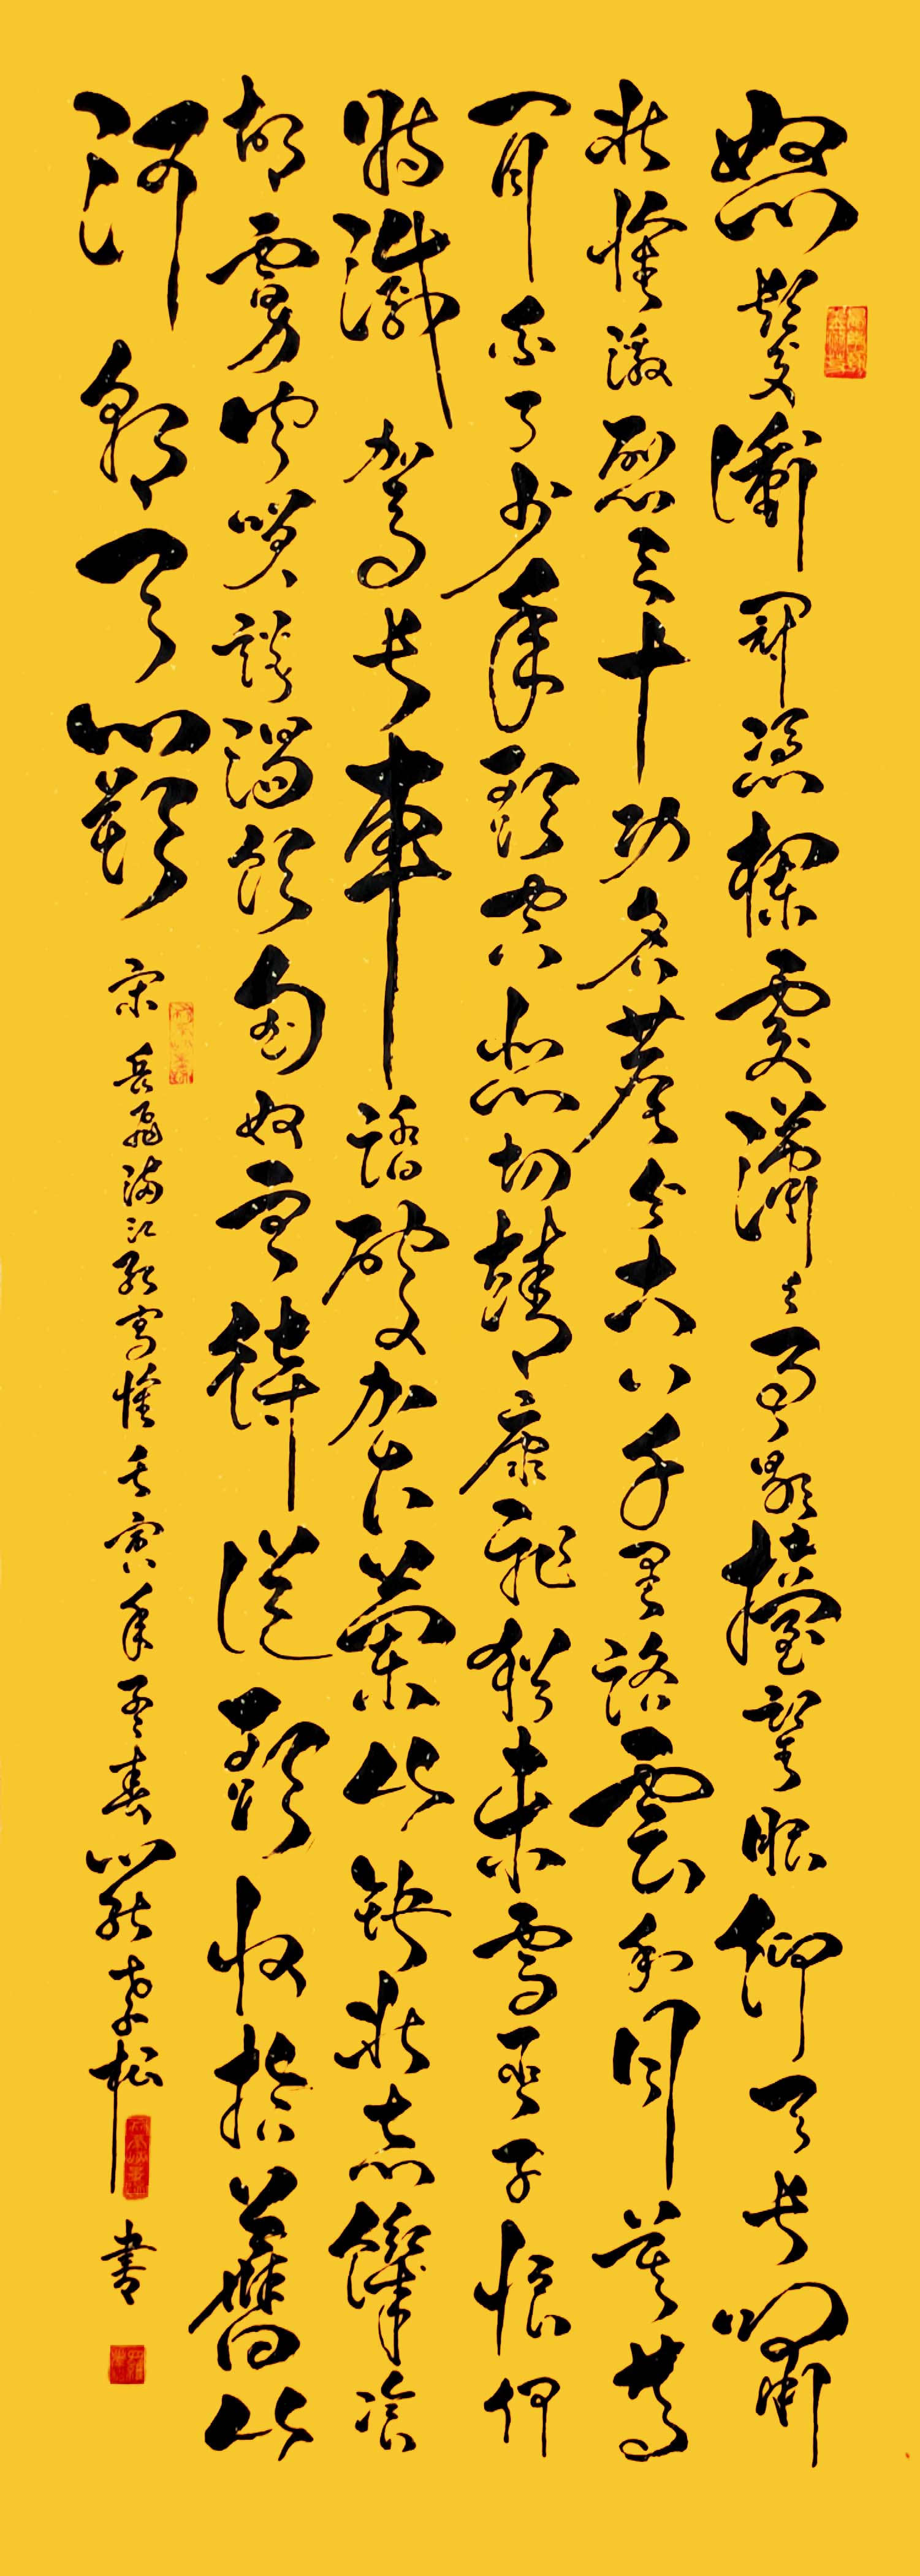 怒髮衝冠憑欄處瀟々雨歇擡望眼仰天長嘯
壯懷激烈三十功名塵与土八千里路雲和月莫等
閒白了少年頭空悲切靖康恥猶未雪臣子恨何
時滅駕長車踏破賀蘭山缺壯志饑飡
胡虜肉笑談渴飲匈奴血待從頭收拾舊山
河朝天闕
宋岳飛滿江紅寫懷壬寅年孟春李松書